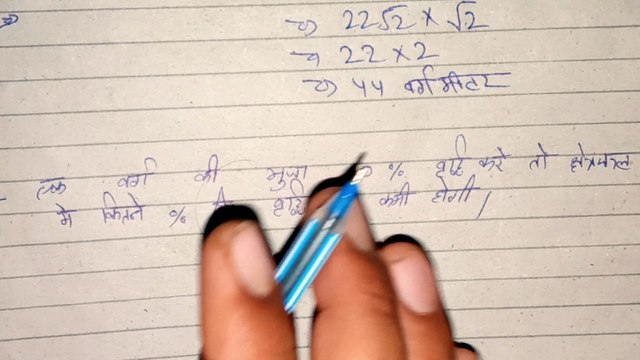 =) 22√2 × √2
=) 22 × 2
=) 44 वर्ग मीटर
एक वर्ग की भुजा % वृद्धि करे तो क्षेत्रफल
मे कितने % वृद्धि कमी होगी /